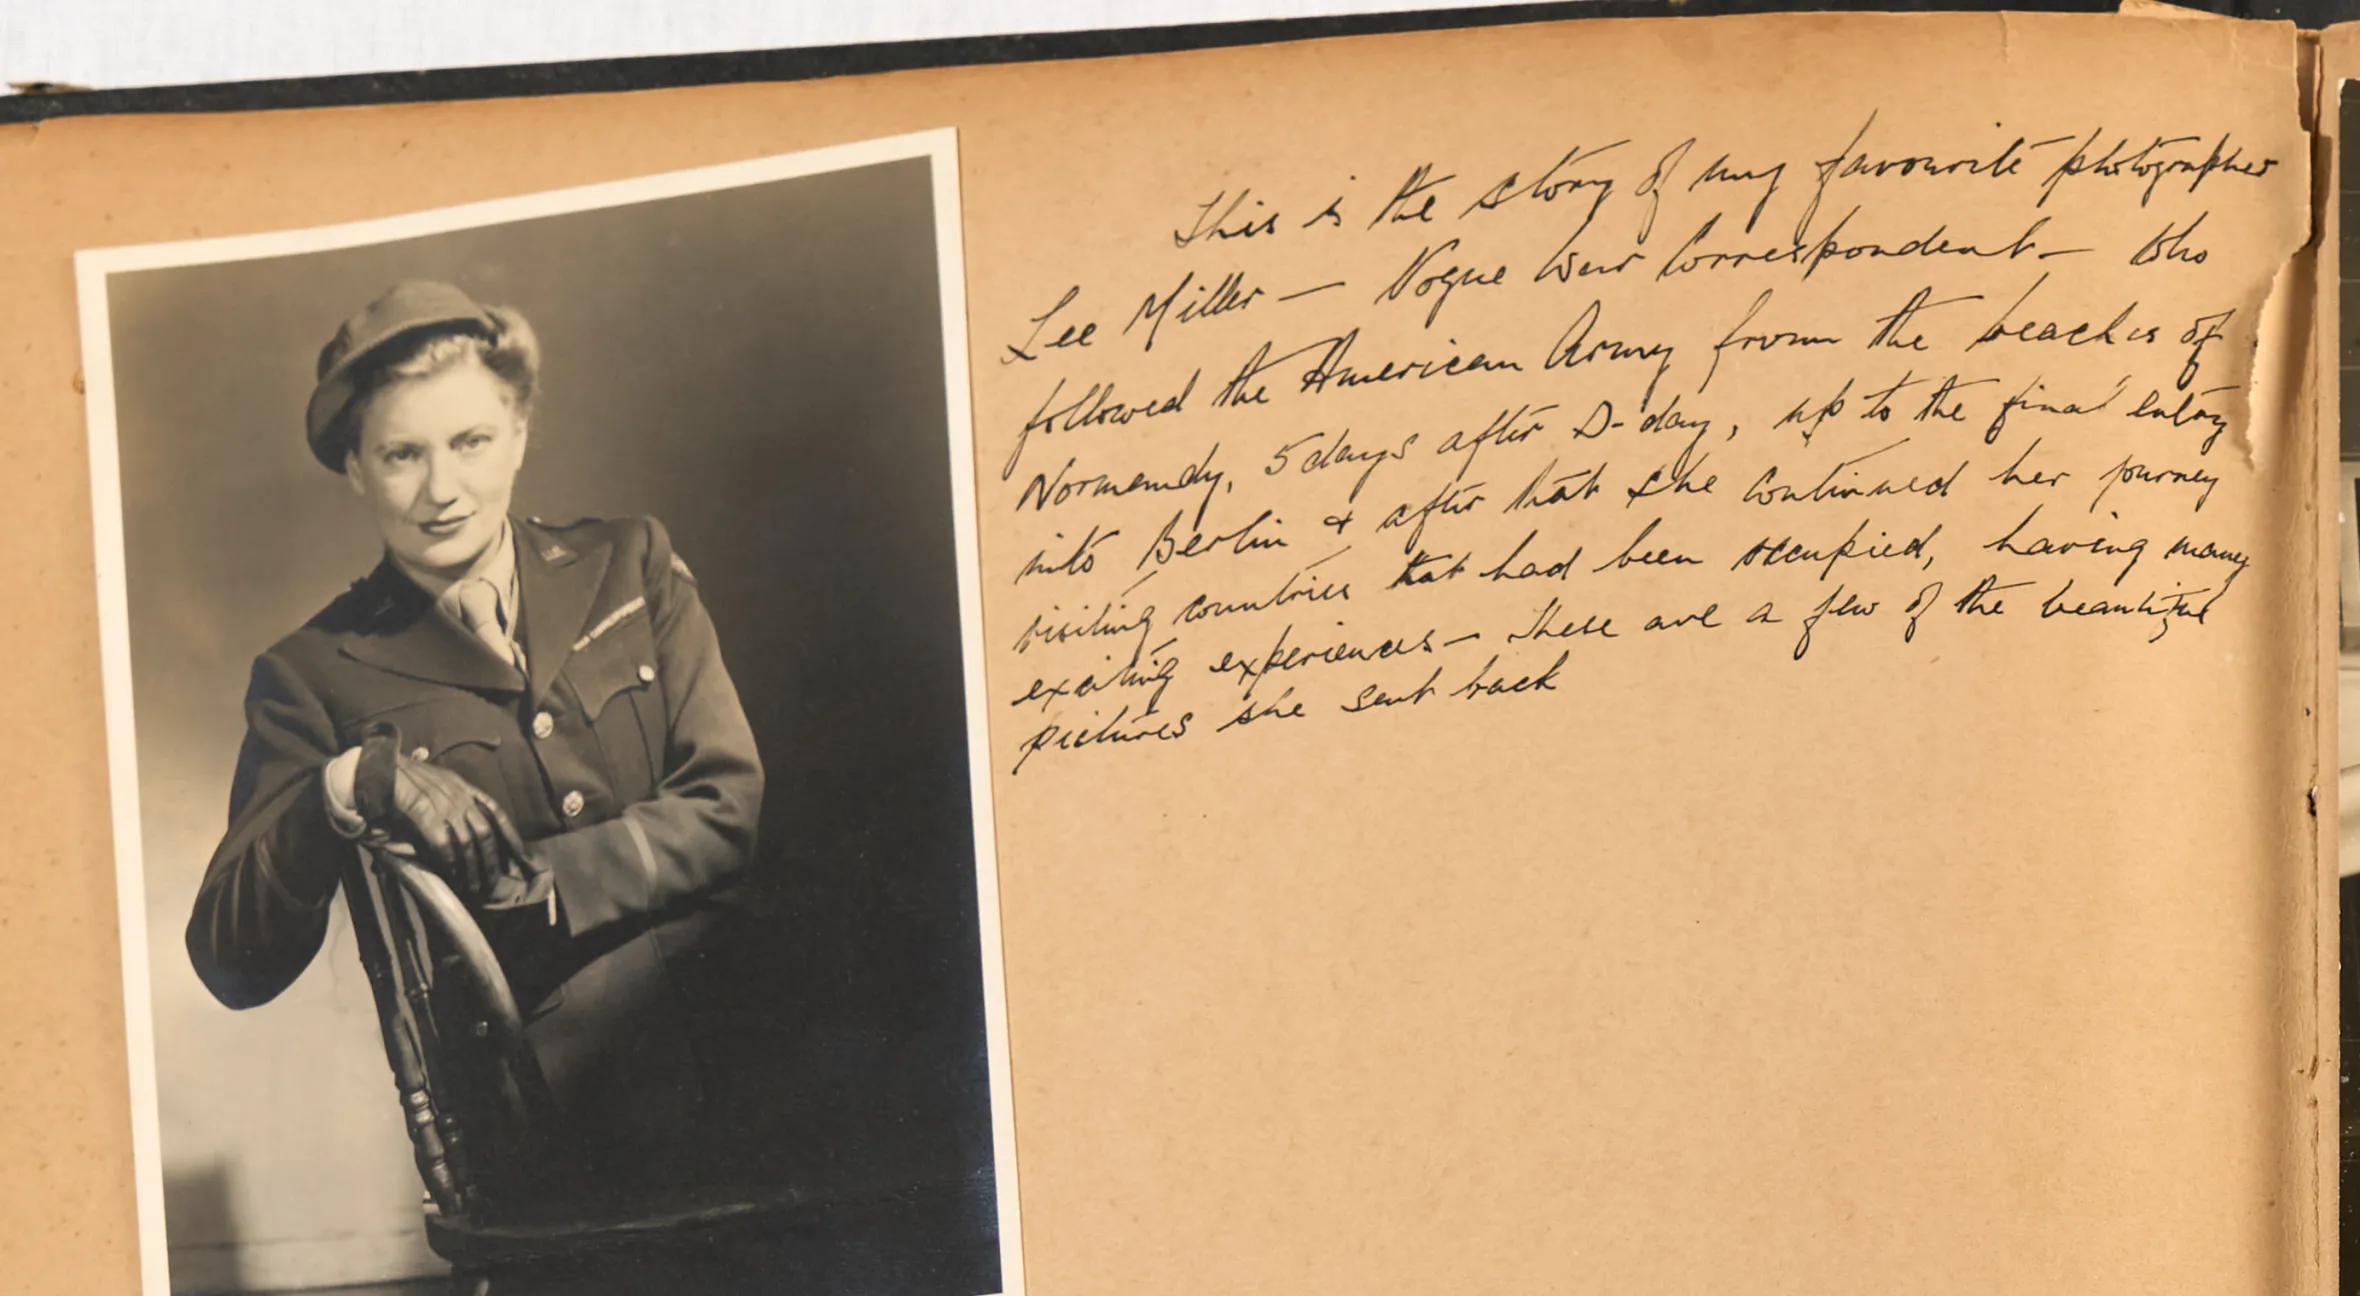 This is the story of my favourite photographer
Lee Miller — Vogue War Correspondent — who
followed the American Army from the beaches of
Normandy, 5 days after D-day, up to the final entry
into Berlin & after that she continued her journey
visiting countries that had been occupied, having many
exciting experiences — These are a few of the beautiful
pictures she sent back